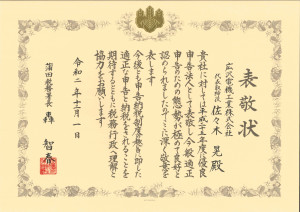 表敬状
広沢電機工業株式会社
代表取締役 佐々木 晃 殿
貴社に対しては平成二十年度に優良
申告法人として表敬し今般適正
申告のための態勢が極めて良好と
認められましたのでここに深く敬意を
表します
今後とも申告納税制度の趣旨に即した
適正な申告と納税をされることを
期待するとともに税務行政へ理解と
協力をお願いします
令和二年十二月一日
蒲田税務署長 轟 智香